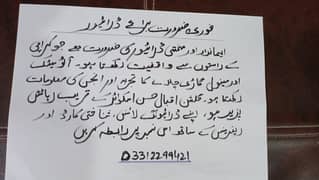 فوری ضرورت برائے ڈرائیور
ایماندار اور محنتی ڈرائیور کی ضرورت ہے جو کراچی
کے راستوں سے واقفیت رکھتا ہو۔ آٹومیٹک
اور مینول گاڑی چلانے کا تجربہ اور انجن کی معلومات
رکھتا ہو۔ گلشن اقبال حسن اسکوائر کے قریب رہائش
پذیر ہو، اپنے ڈرائیونگ لائسنس، شناختی کارڈ اور
ریفرنس کے ساتھ اس نمبر پر رابطہ کریں
03312299421